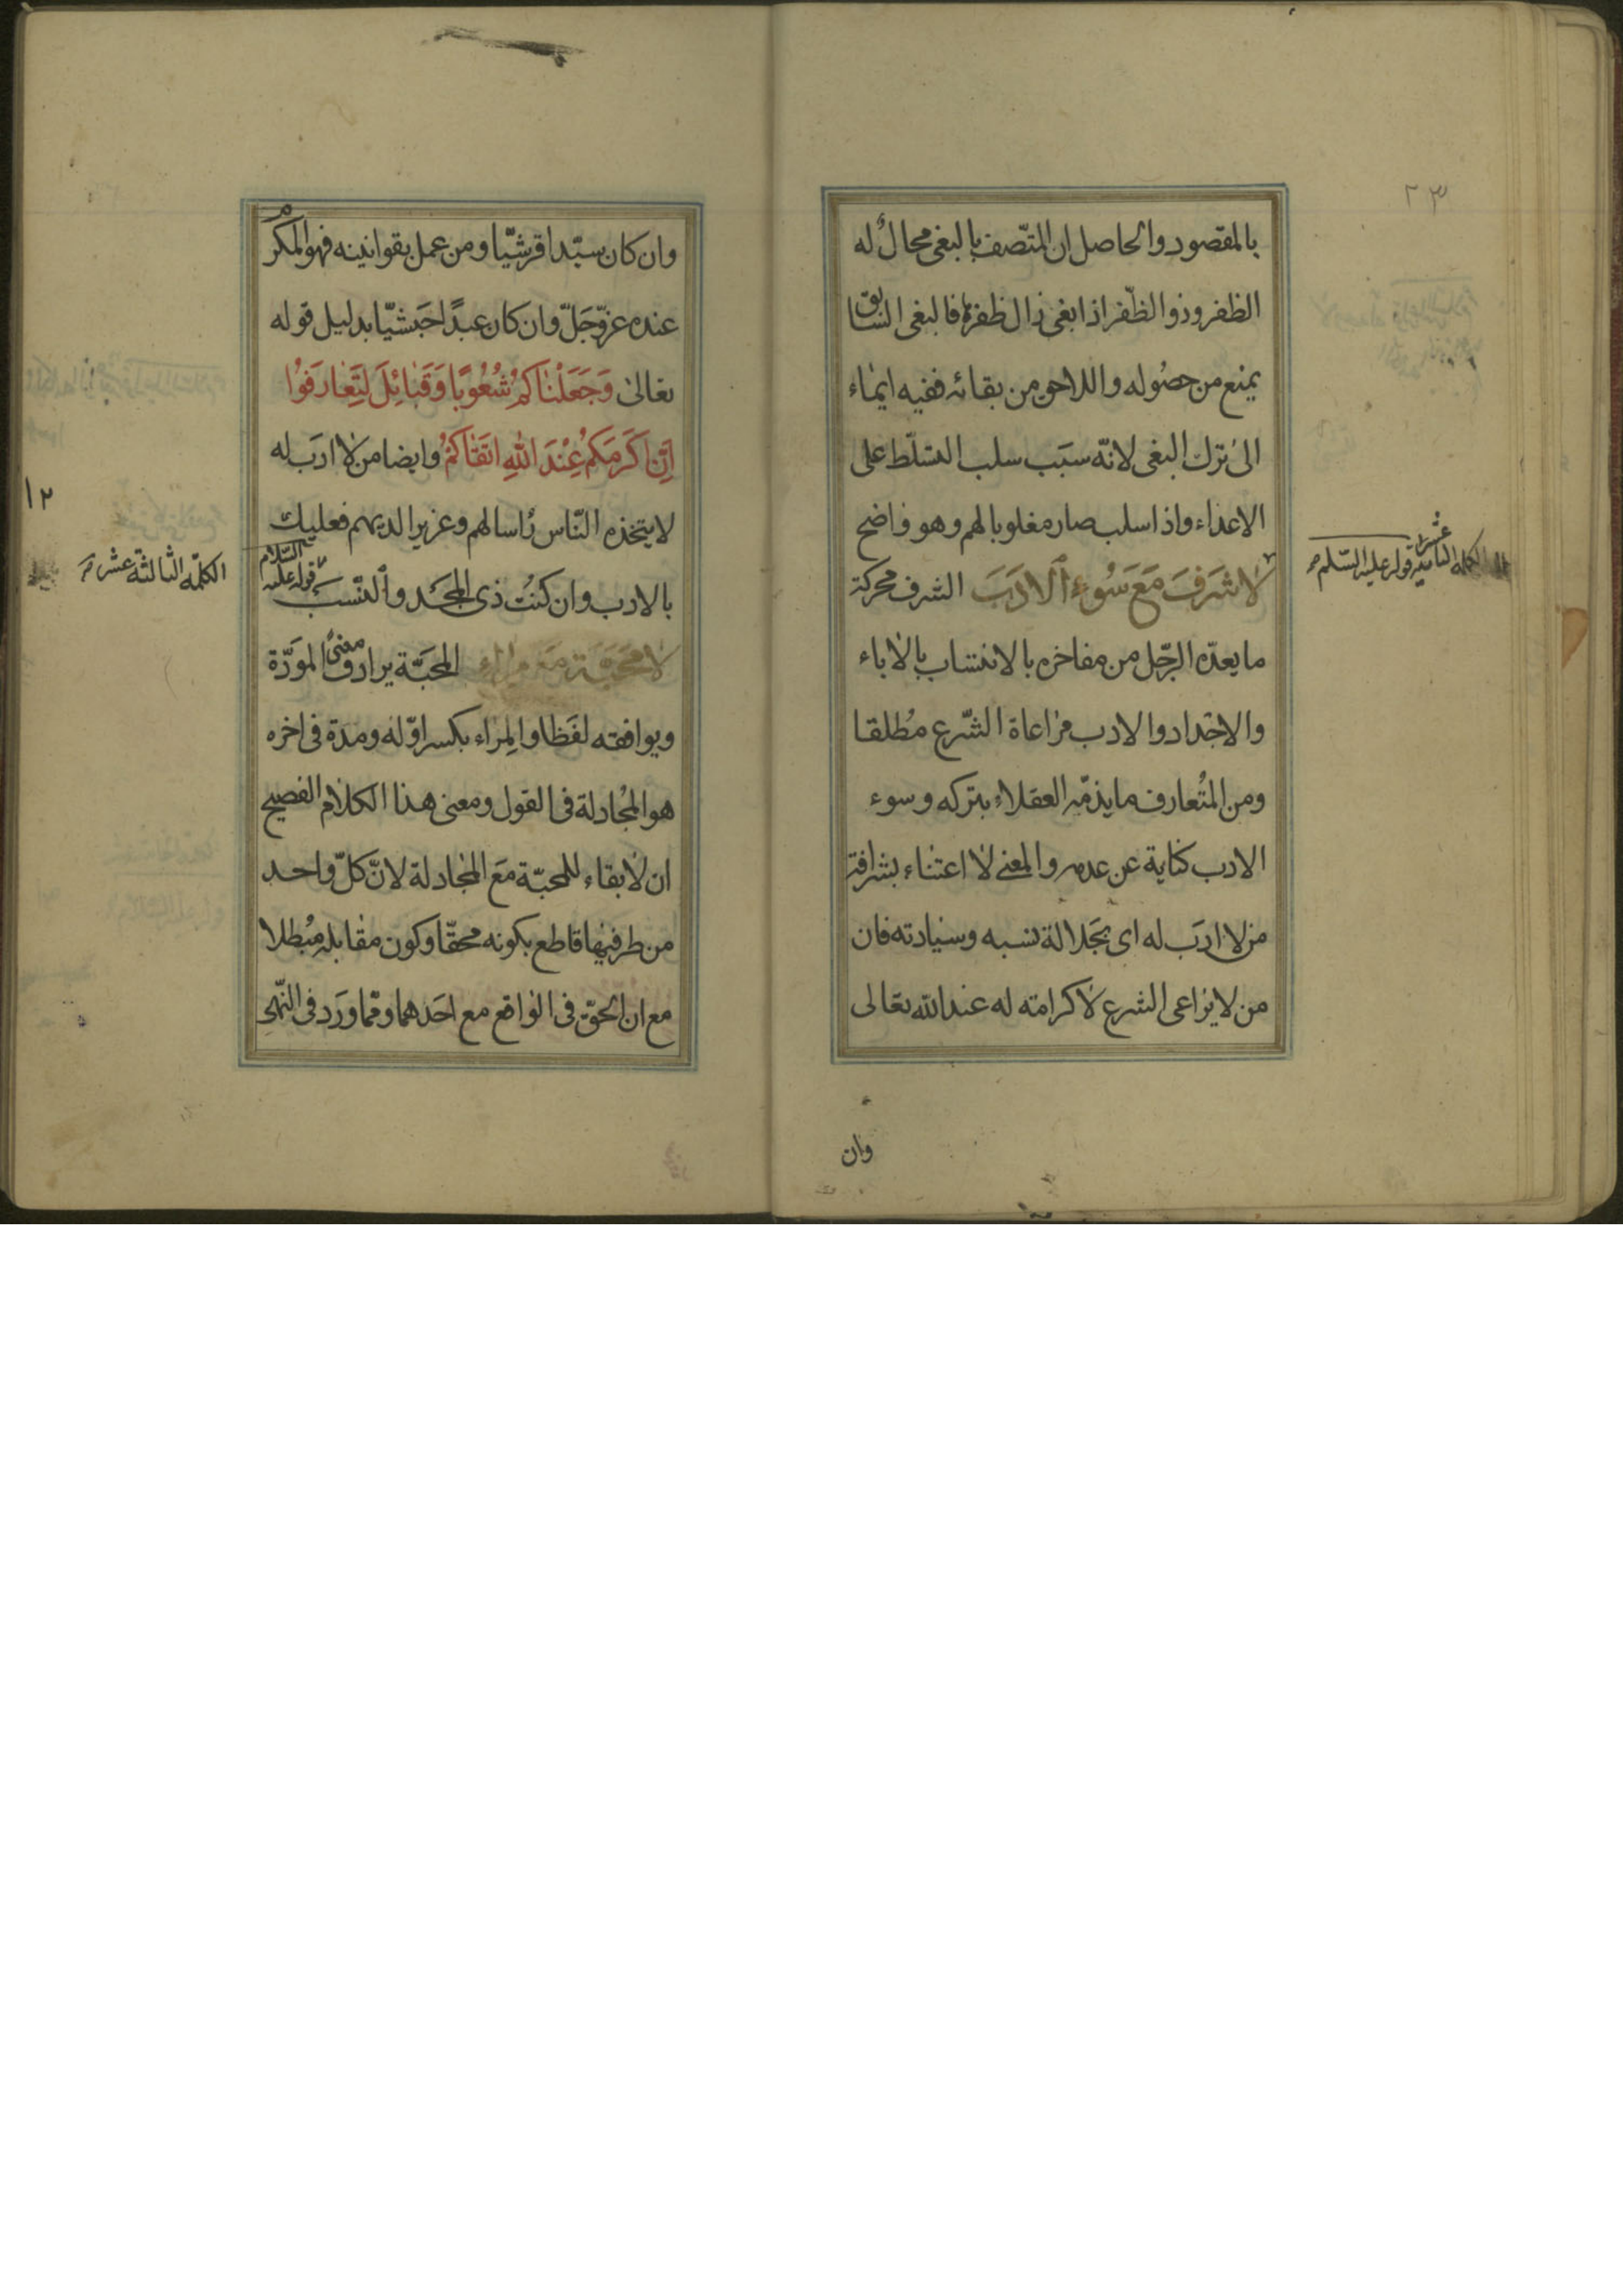 ٢٣
بالمقصود والحاصل ان المتّصف بالبغى محالٌ له
الظفر وذو الظّفر اذا بغى زال ظفره فالبغى السّابق
يمنع من حصُوله واللاحق من بقائه ففيه ايماء
الى ترك البغى لانّه سبَب سلب التسَلّط على
الاعداء واذا سلب صار مغلوبا لهم وهو واضح
لا شَرَفَ مَعَ سُوءِ الادَبَ الشرف محركة
ما يعدّه الرّجل من مفاخره بالانتساب بالاباء
والاجداد والادب مراعاة الشّرع مُطلقا
ومن المتُعارف ما يذمّه العقلاء بتركه وسوء
الادب كناية عن عدمه والمعنى لا اعتناء بشرافة
من لا ادَب له اى بجَلالة نسبه وسيادته فان
من لا يراعى الشرع لا كرامته له عند الله تعالى
وان
الكلمة الثانية عشر قوله عليه السّلم
وان كان سيّدا قرشيّا ومن عمل بقوانينه فهو المكرم
عنده عزّ وجَلّ وان كان عبدًا حَبشيّا بدليل قوله
تعالى وَجَعَلْنٰاكمُ شُعُوبًا وَقَبٰائِلَ لِتَعٰارَفوُا
اِنَّ اَكرَمَكمُ عِنْدَ اللهِ اتقٰاكمُ وايضا من لا ادَب له
لا يتخذه النّاس راسا لهم وعزيرا لديهم فعليك
بالادب وان كنُت ذى المجَد والنّسَب قوله عليه السّلام
لا مَحَبَّة مَعَ مِراء المحَبّة يرادف معنىً الموَدّة
ويوافقه لفَظا والمِرٰاء بكسر اوّله ومدة فى اخره
هو المجُادلة فى القول ومعنى هذا الكلام الفصيح
ان لا بقاء للمحبّة مَع المجٰادلة لانّ كلّ واحد
من طرفيها قاطع بكونه محقّا وكون مقابله مُبطلا
مع ان الحقّ فى الواقع مع احَدهما وممّا ورَد فى النّهى
١٢
الكلمّة الثالثة عشر